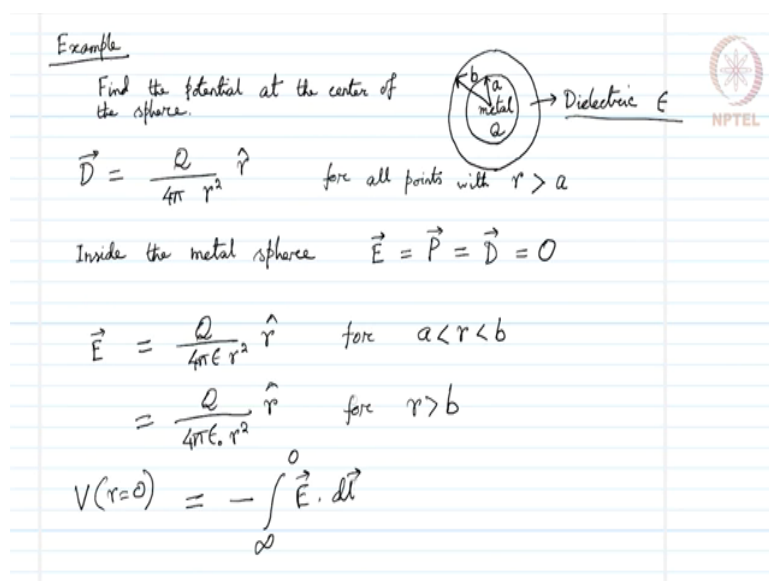 Example
Find the potential at the center of
the sphere.
b
a
metal
Q
→ Dielectric ϵ
NPTEL
D⃗ = Q / 4π r² r̂ for all points with r > a
Inside the metal sphere E⃗ = P⃗ = D⃗ = 0
E⃗ = Q / 4πϵ r² r̂ for a<r<b
= Q / 4πϵ₀ r² r̂ for r>b
V(r=0) = - ∫_∞^0 E⃗ . dl⃗